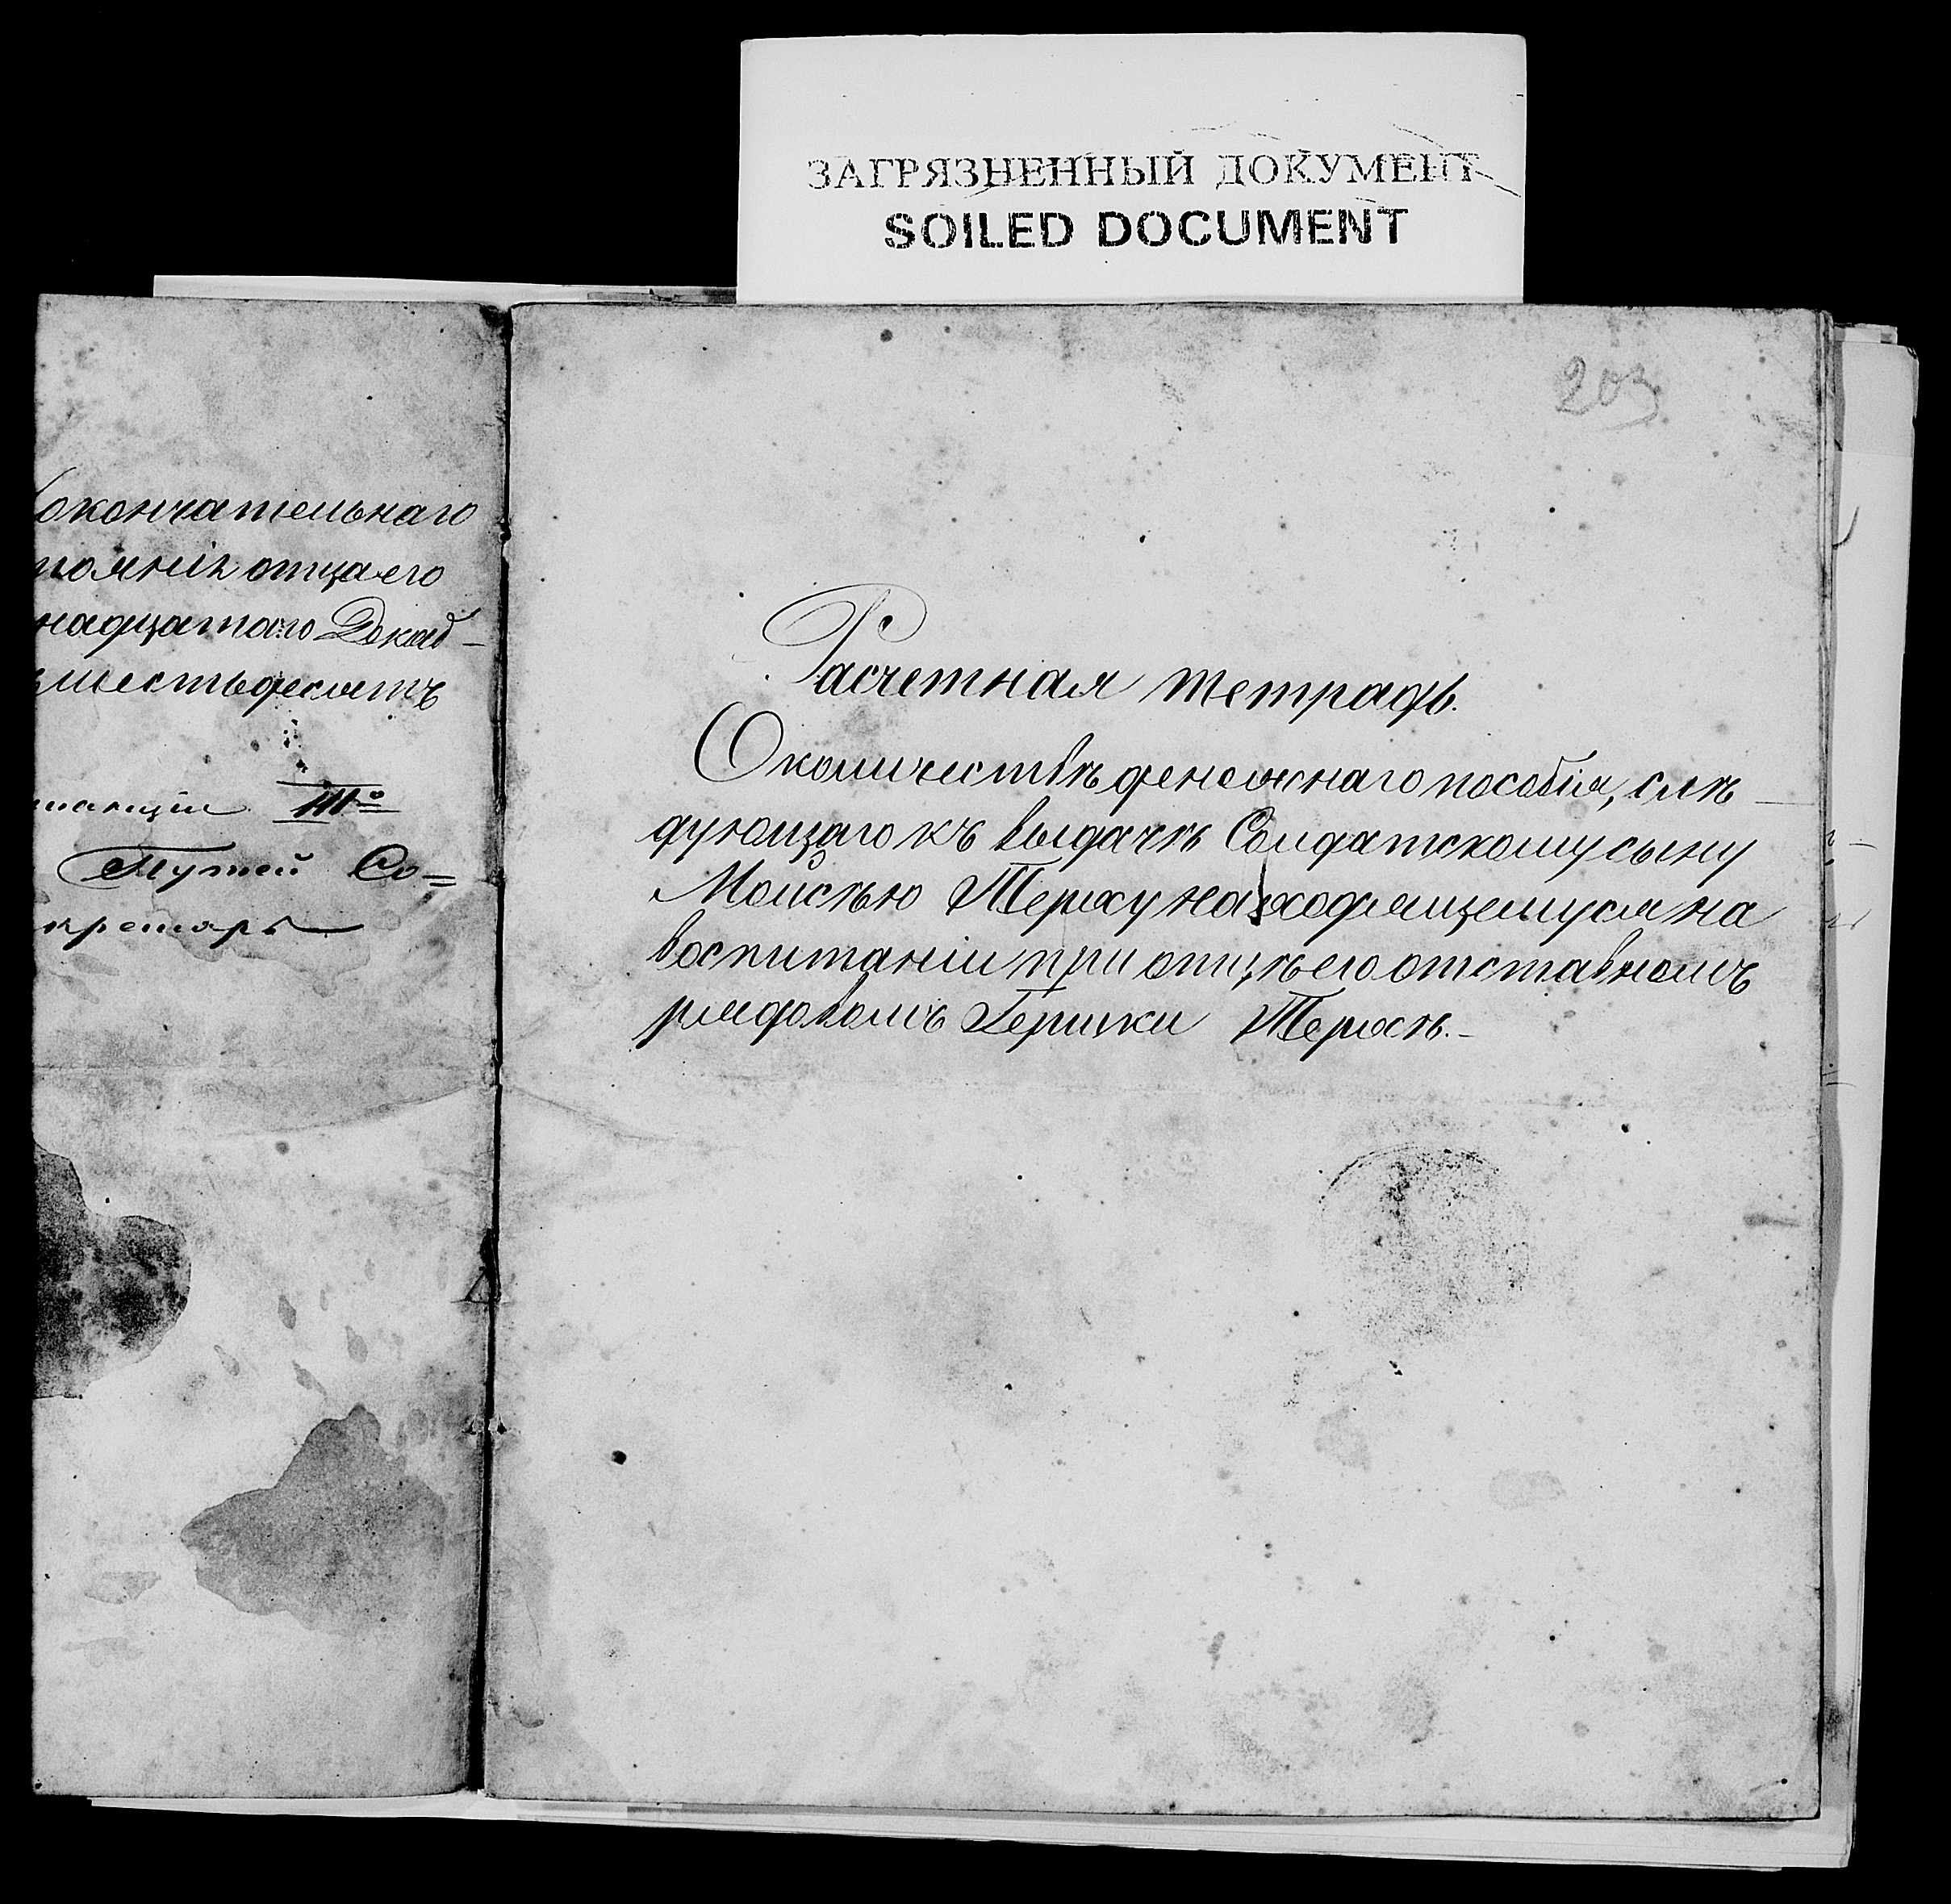 ЗАГРЯЗНЕННЫЙ ДОКУМЕНТ
SOILED DOCUMENT
окончательнаго
отца его
надцатаго Декаб-
шестьдесятъ
Путей Со=
203
Расчетная тетрадь.
О количествѣ денежнаго пособія, слѣ-
дующаго къ выдачѣ Солдатскому сыну
Моисѣю Терху находящемуся на
воспитаніи при отцѣ его отставномъ
рядовомъ Гершки